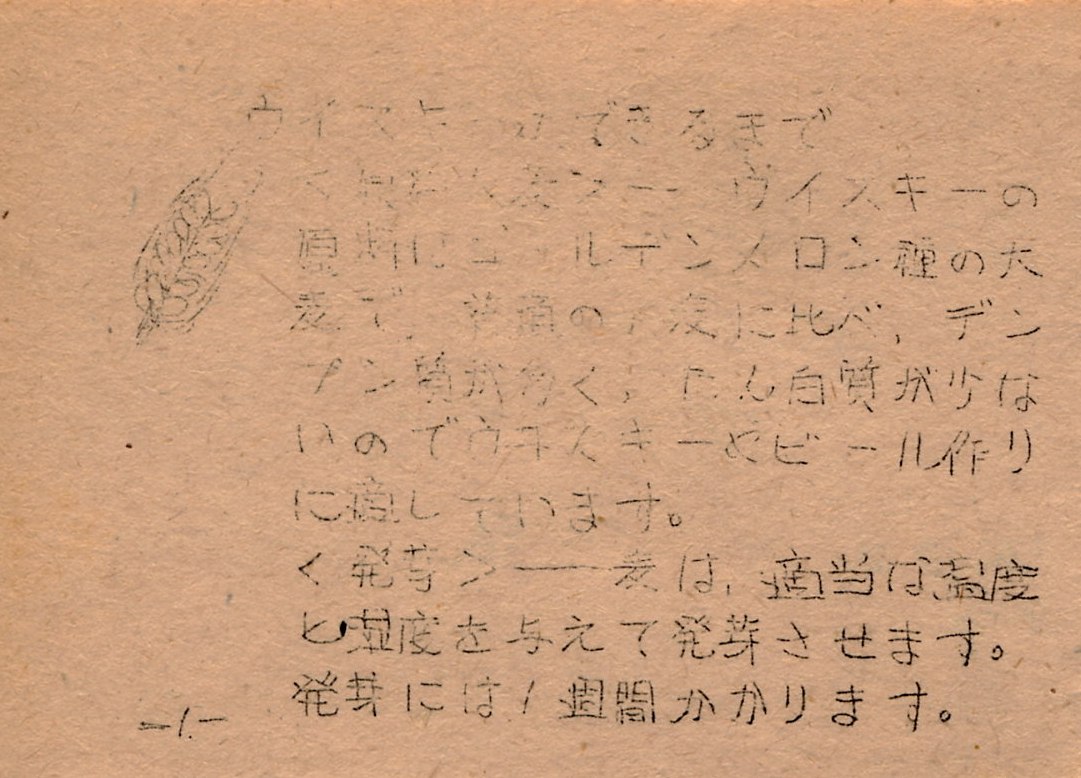 ウイスキーのできるまで
<原料大麦>ーーウイスキーの
原料はゴールデンメロン種の大
麦で、普通の大麦に比べ、デン
プン質が多く、たん白質が少な
いのでウイスキーやビール作り
に適しています。
<発芽>――麦は、適当な温度
と湿度を与えて発芽させます。
発芽には1週間かかります。
-1-